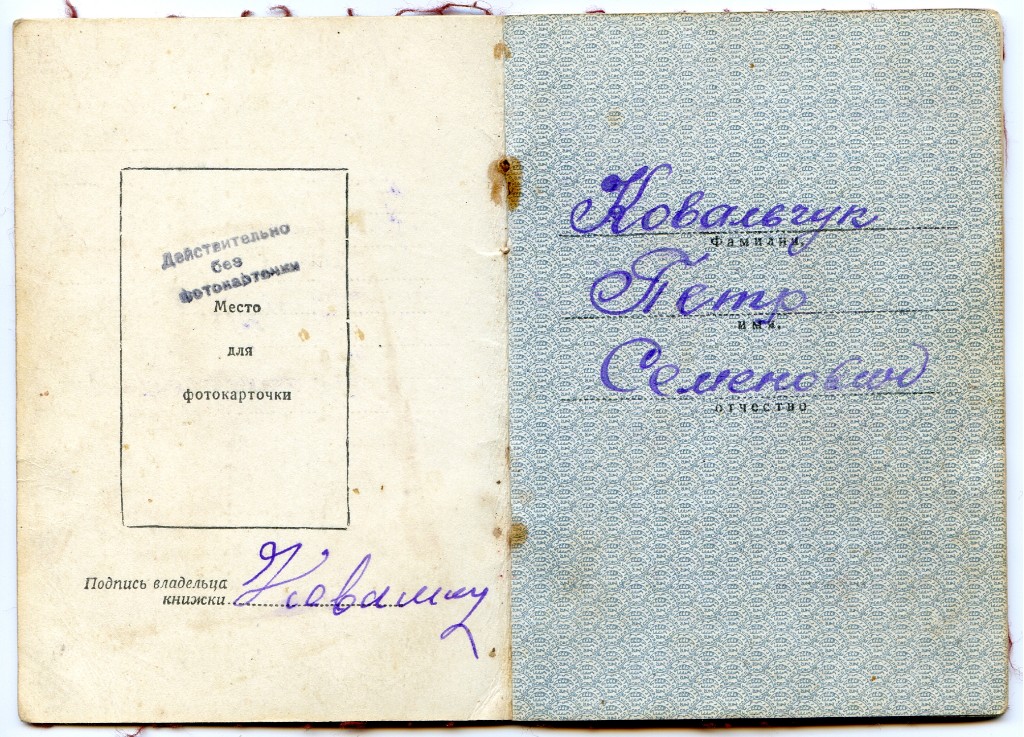 Действительно
без
фотокарточки
Место
для
фотокарточки
Подпись владельца
книжки
Ковальчук
фамилия
Петр
имя.
Семенович
отчество